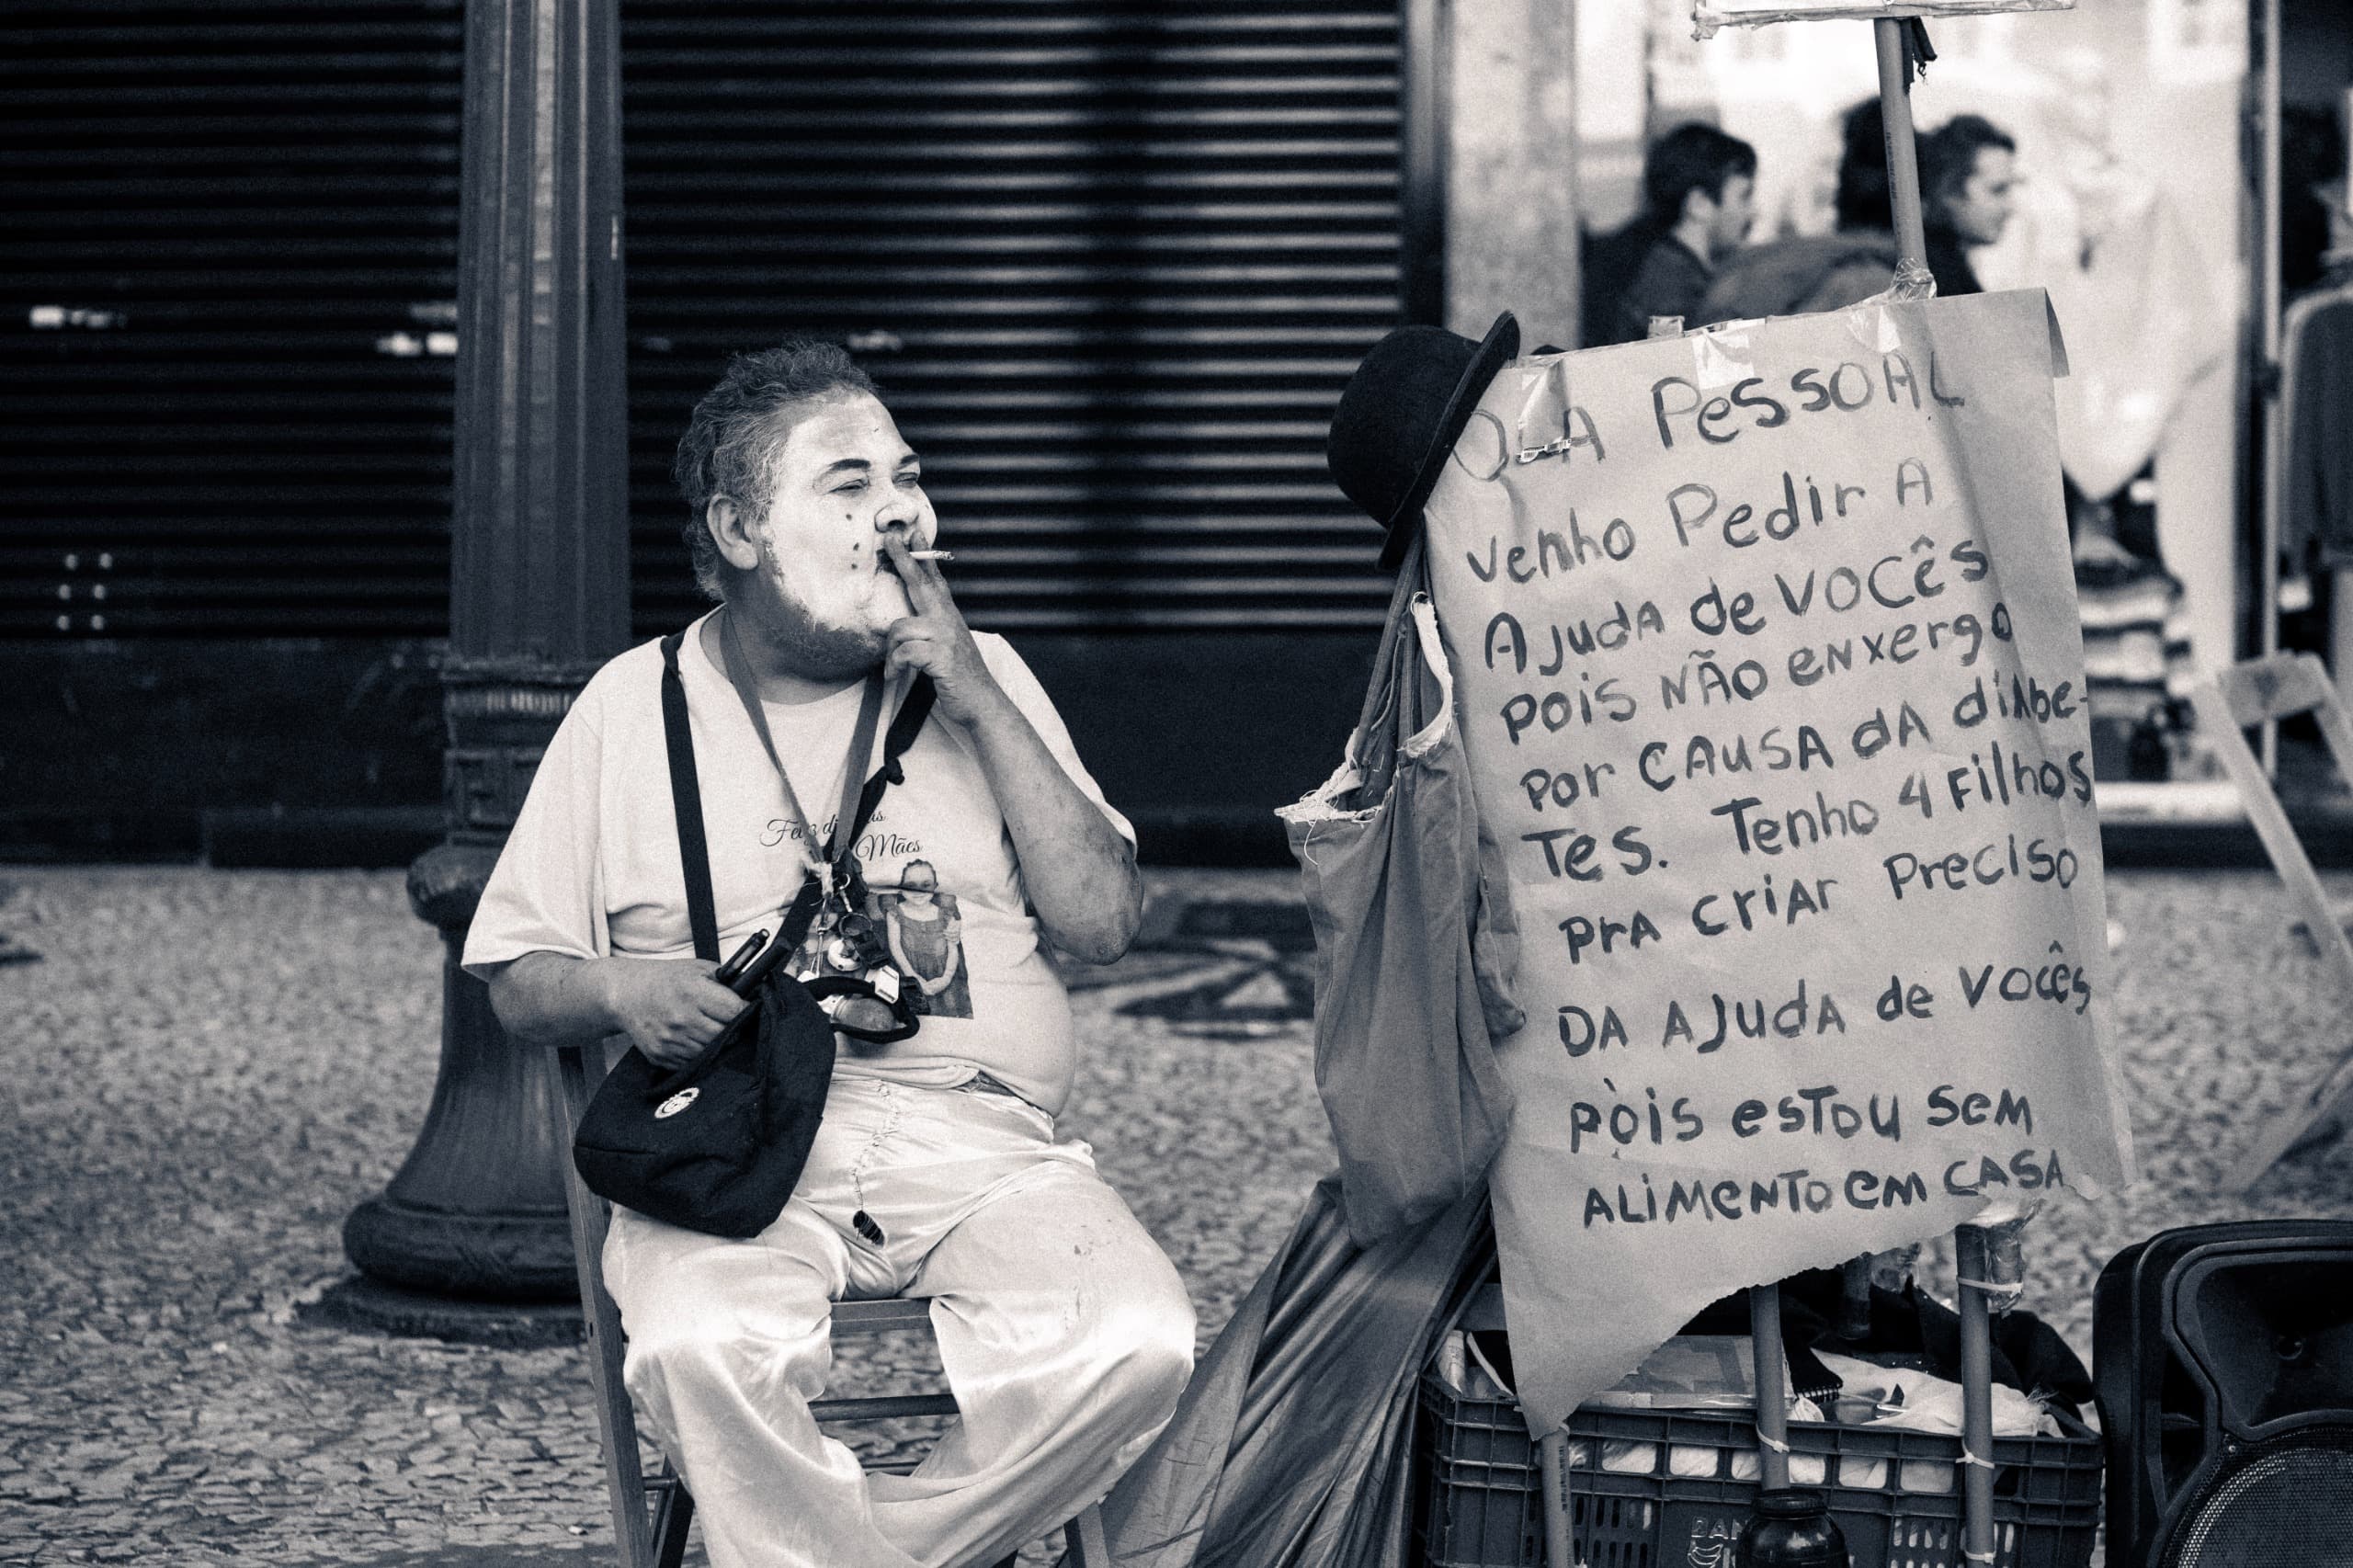 Feliz dia das
Mães
OLA PeSSOAL
venho Pedir A
AJudA de VOCÊS
POIS NÃO eNxergo
Por CAUSA dA diAbe-
Tes. Tenho 4 Filhos
PrA CriAr PreCISO
DA AJudA de VOCÊS
POIS eSTOU Sem
ALIMeNTO em CASA